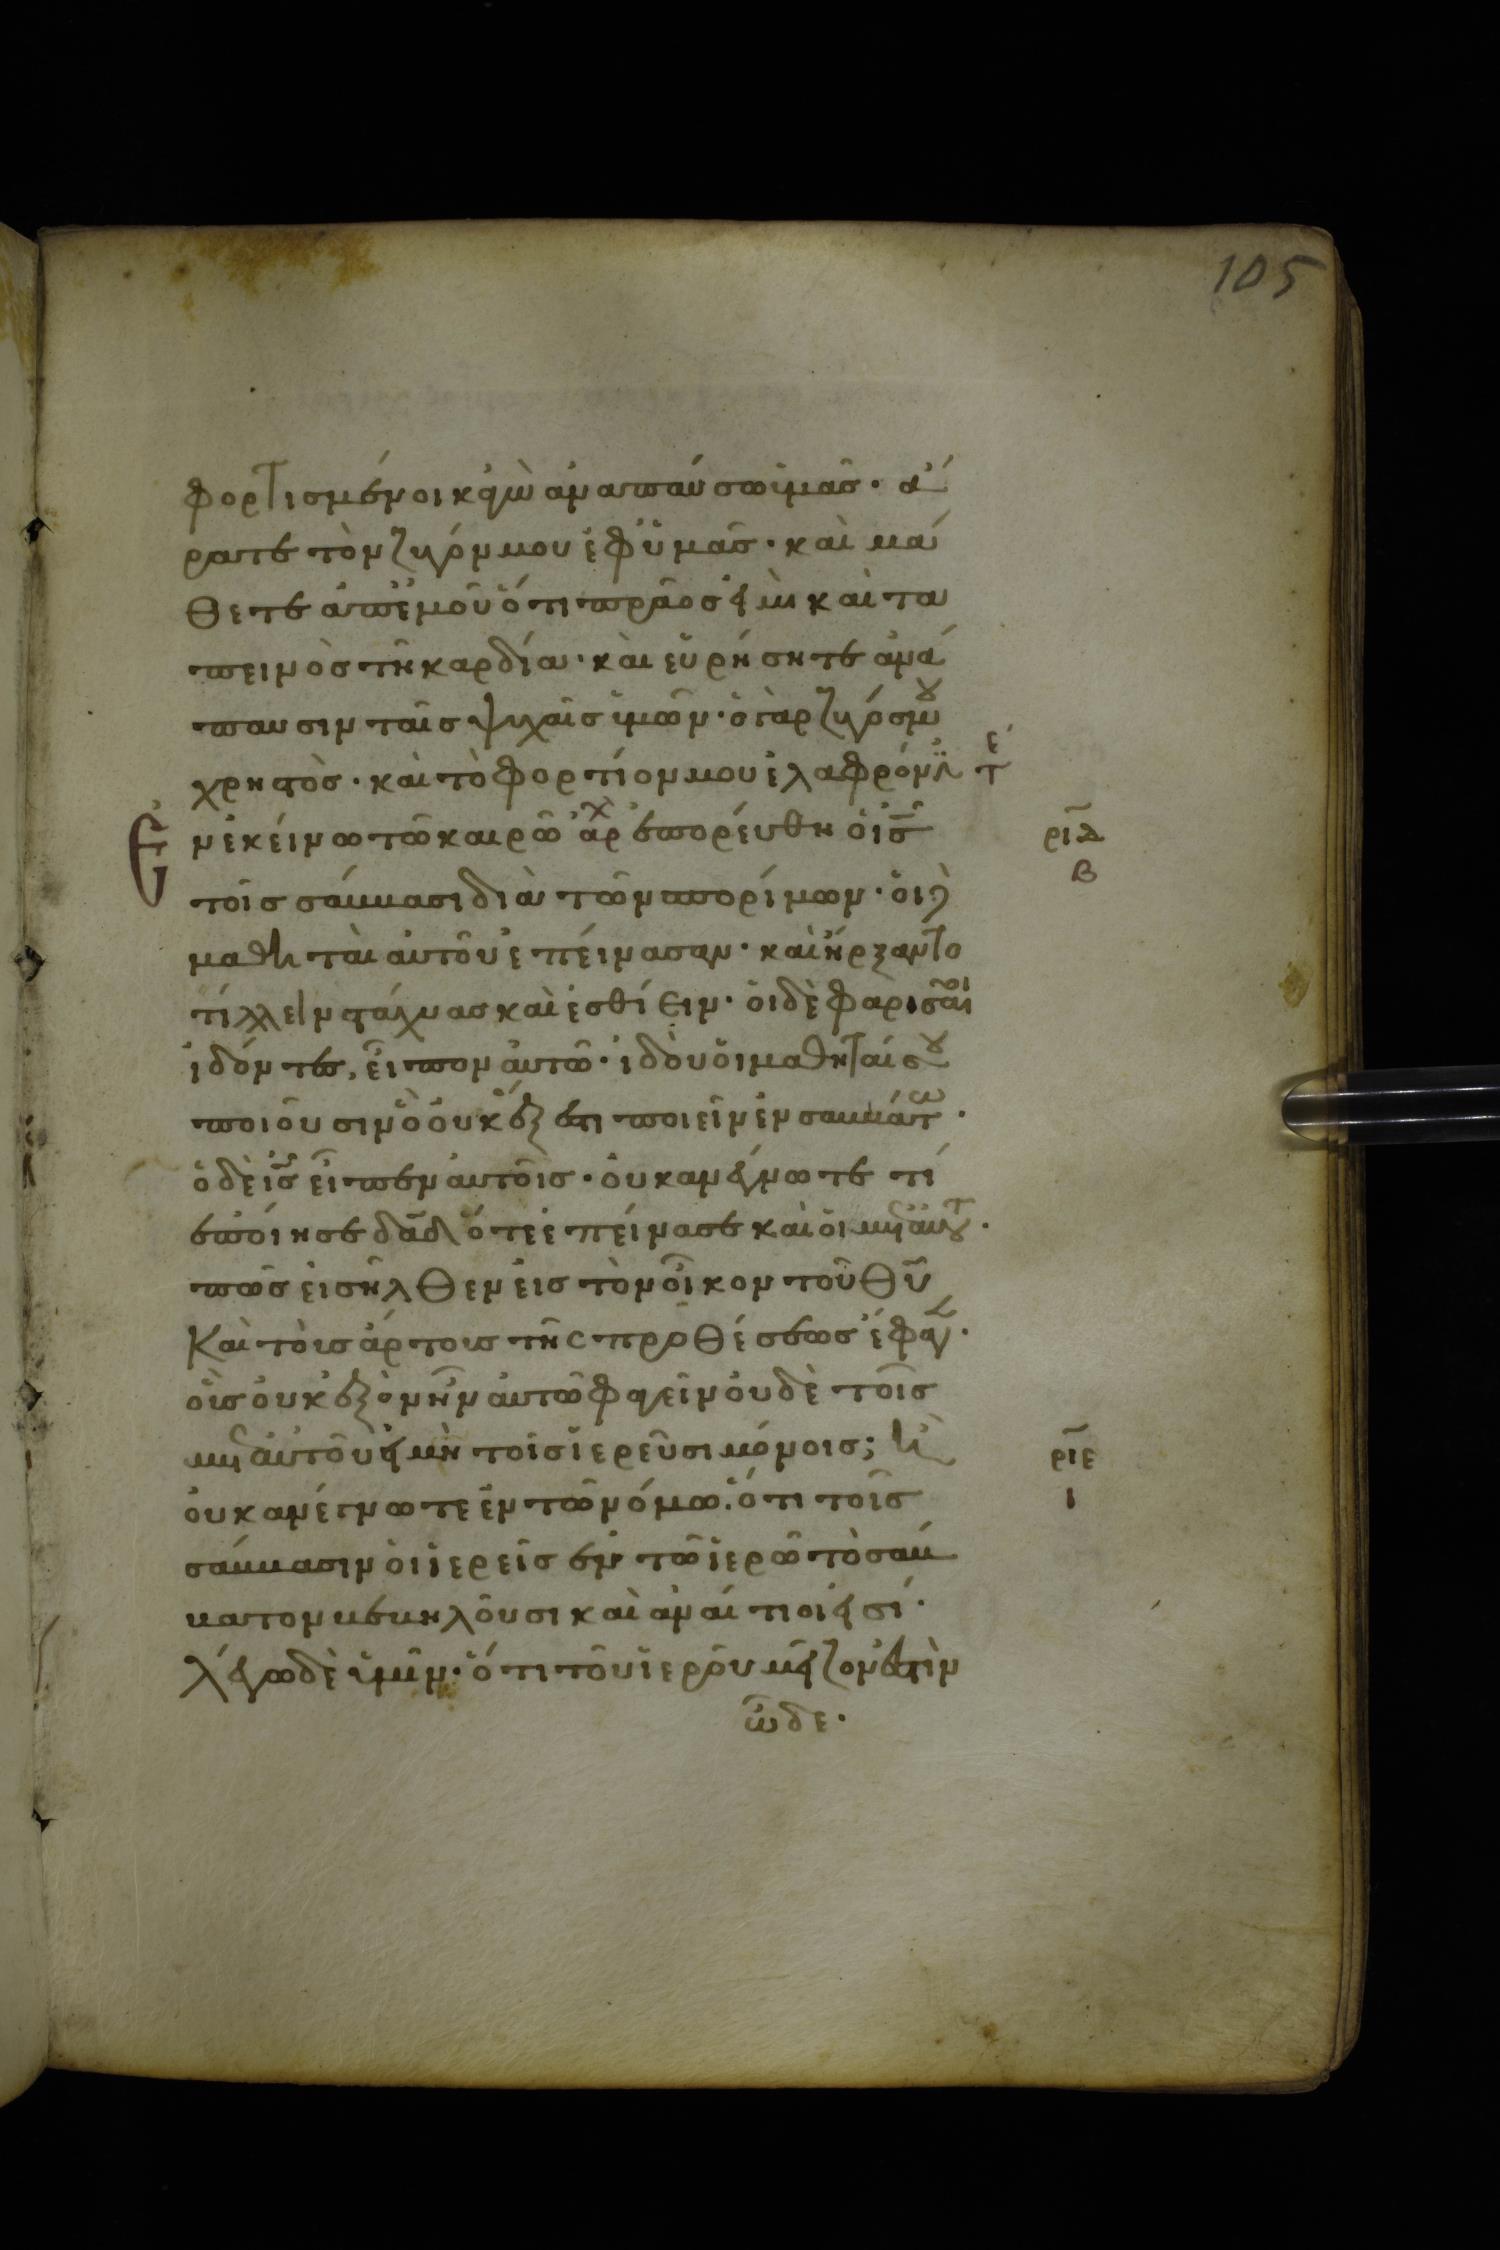 105
φορτισμένοι κἀγὼ ἀναπαύσω ὑμᾶς· ἄ
ρατε τὸν ζυγόν μου ἐφ ὑμᾶς· καὶ μά
θετε ἀπ ἐμοῦ ὅτι πρᾶος εἰμι καὶ τα
πεινὸς τῆ καρδία· καὶ εὑρήσητε ἀνά
παυσιν ταῖς ψυχαῖς ὑμῶν· ὁ γὰρ ζυγός μου
χρηστὸς· καὶ τὸ φορτίον μου ἐλαφρόν ἐ
Ἐν ἐκείνω τῶ καιρῶ ἀρχ ἐπορεύθη ὁ ις
ριδ
β
τοῖς σάββασι διὰ τῶν σπορίμων· οἱ δὲ
μαθηταὶ αὐτοῦ ἐπείνασαν· καὶ ἤρξαντο
τίλλειν στάχυας καὶ ἐσθίειν· οἱ δὲ φαρισαῖοι
ἰδόντες, εἶπον αὐτῶ· ἰδοὺ οἱ μαθηταί σου
ποιοῦσιν ὃ οὐκ ἔξεστι ποιεῖν ἐν σαββάτω·
ὁ δὲ ις εἶπεν αὐτοῖς· οὐκ ἀνέγνωτε τί
ἐποίησε δαδ ὅτε ἐπείνασε καὶ οἱ μετ αὐτοῦ·
πῶς εἰσῆλθεν εἰς τὸν οἶκον τοῦ θυ
Καὶ τοὺς ἄρτους τῆς προθέσεως ἔφαγ·
οὓς οὐκ ἐξὸν ἦν αὐτῶ φαγεῖν οὐδὲ τοῖς
μετ αὐτοῦ εἰ μὴ τοῖς ἱερεῦσι μόνοις; ἢ
ριε
ι
οὐκ ἀνέγνωτε ἐν τῶ νόμω· ὅτι τοῖς
σάββασιν οἱ ἱερεῖς ἐν τῶ ἱερῶ τὸ σάβ
βατον βεβηλοῦσι καὶ ἀναίτιοι εἰσί·
λέγω δὲ ὑμῖν· ὅτι τοῦ ἱεροῦ μεῖζον ἐστὶν
ὧδε·